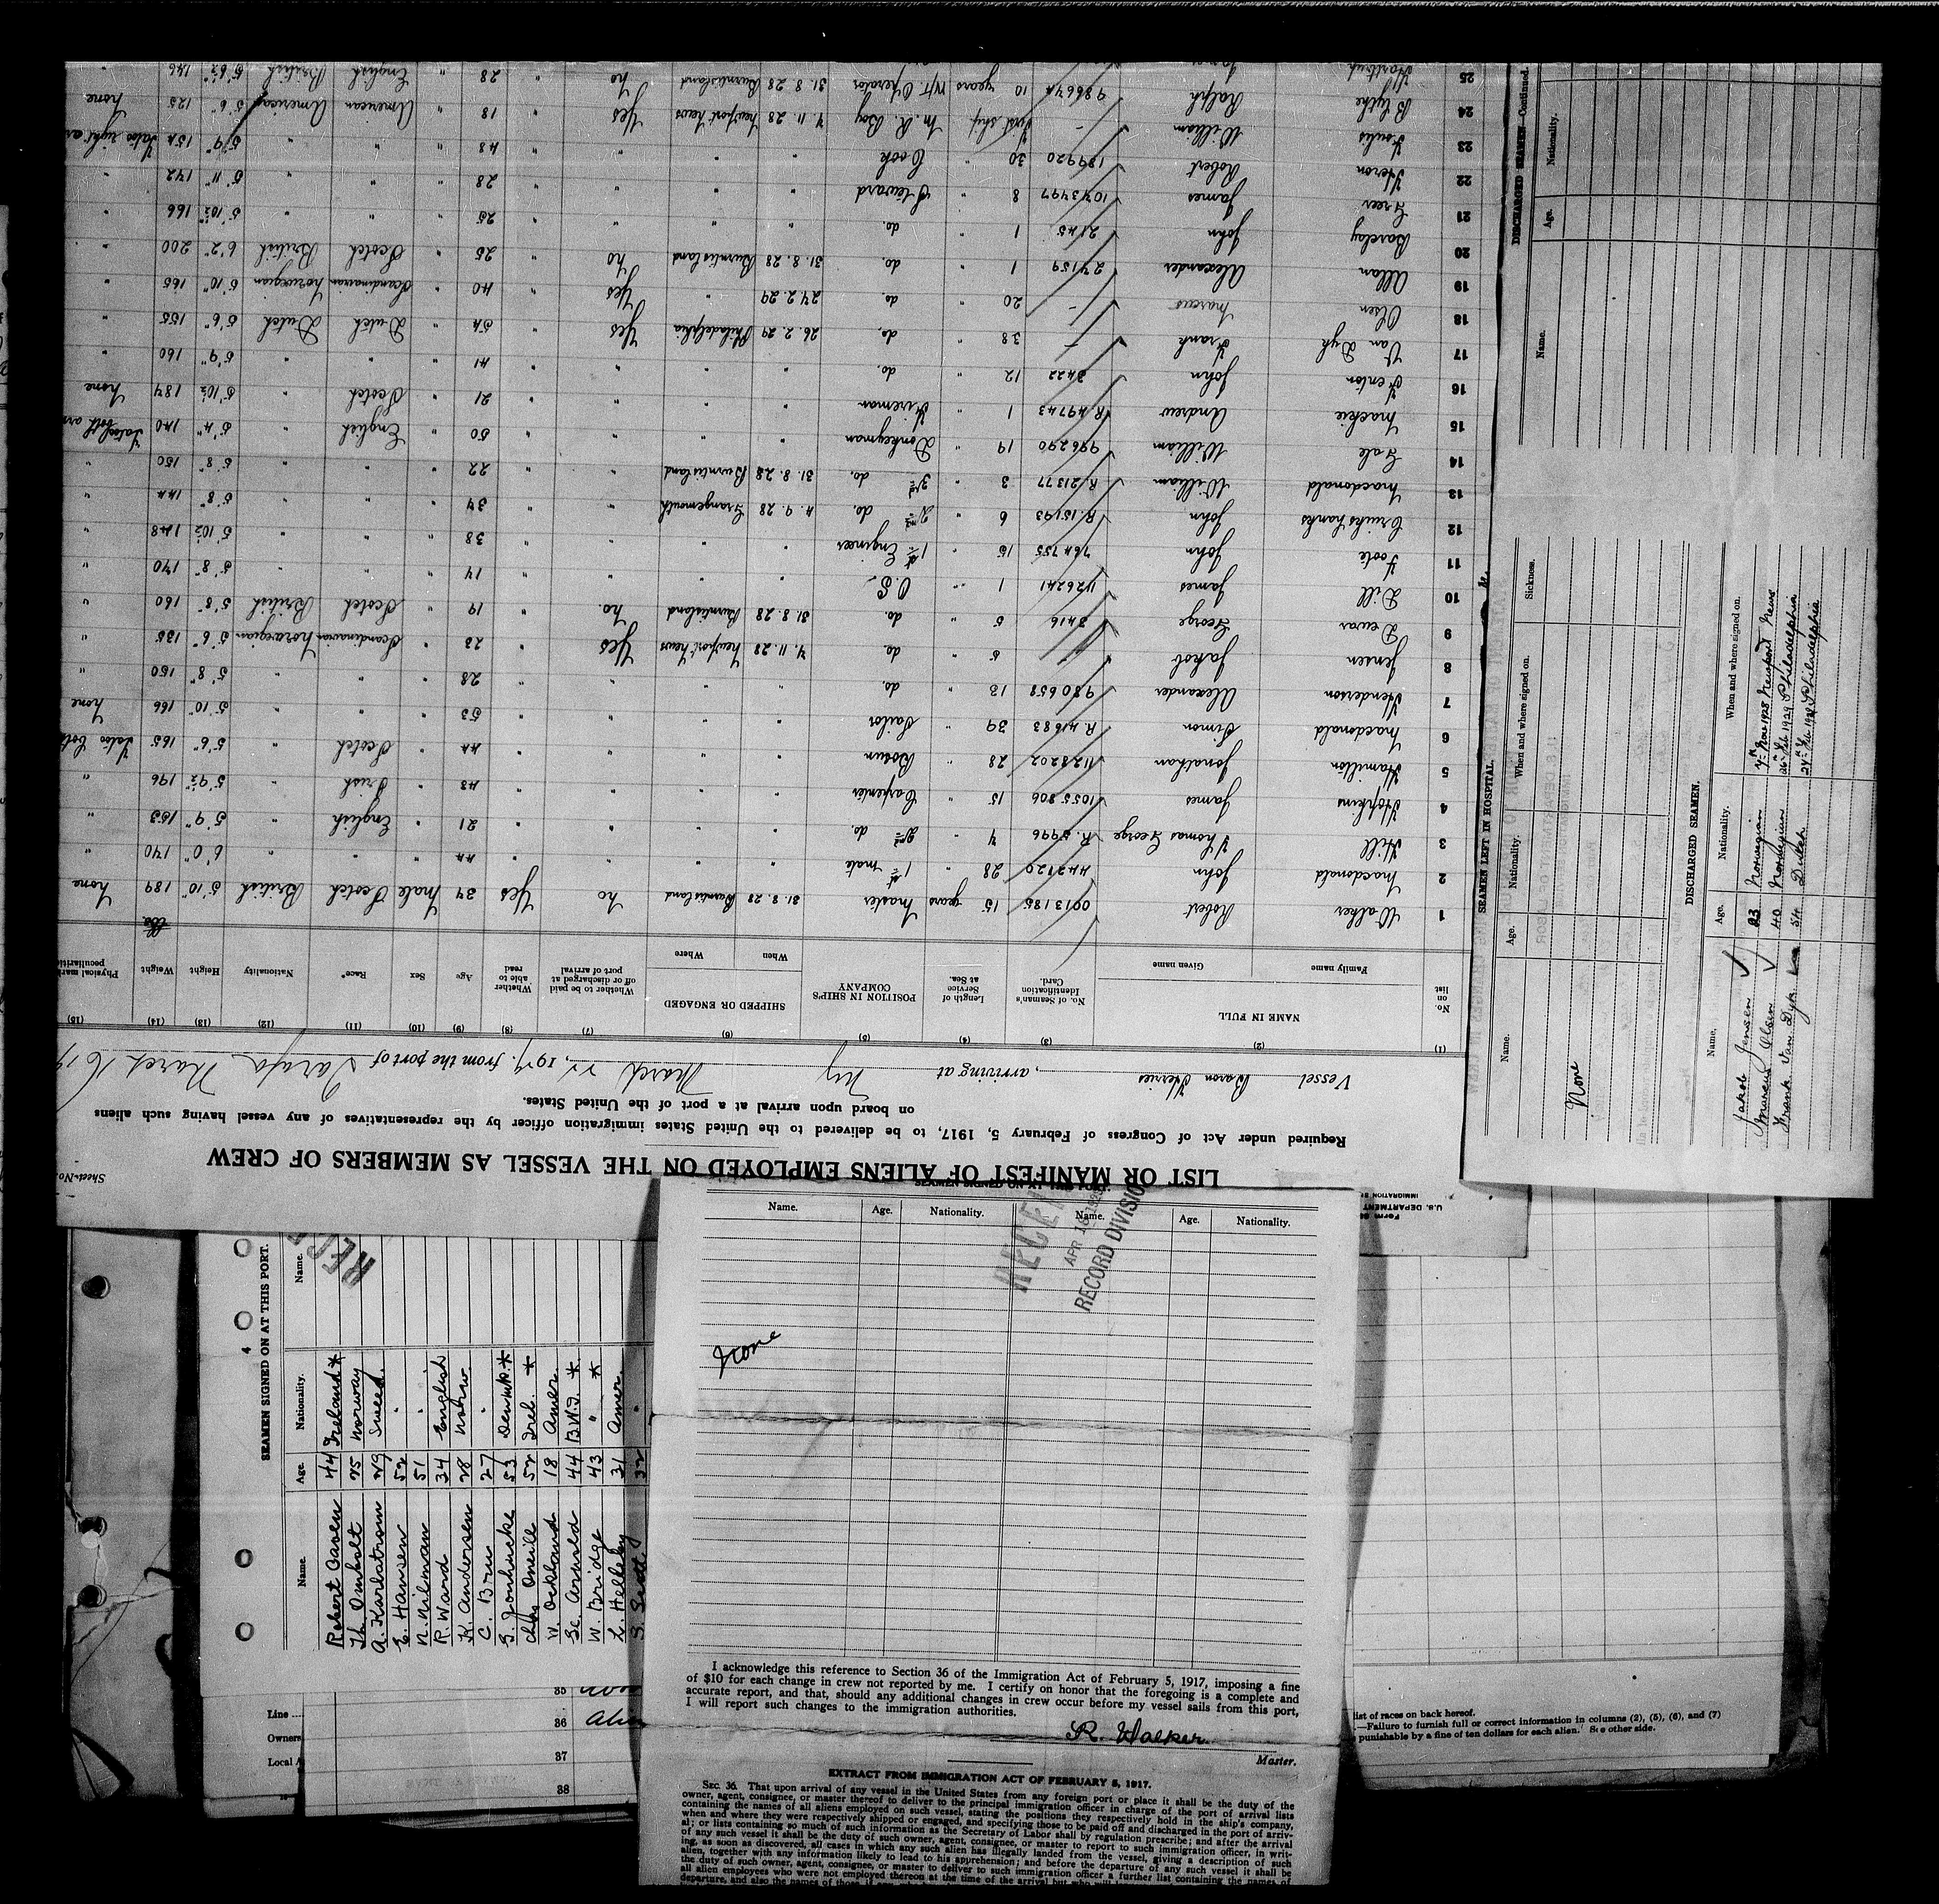 LIST OR MANIFEST OF ALIENS EMPLOYED ON THE VESSEL AS MEMBERS OF CREW
Sheet No.
Required under Act of Congress of February 5, 1917, to be delivered to the United States immigration officer by the representatives of any vessel having such aliens
on board upon arrival at a port of the United States.
Vessel Baron Herries, arriving at NY March, 19 from the port of Tarafa March 16
(1) (2) (3) (4) (5) (6) (7) (8) (9) (10) (11) (12) (13) (14) (15)
No. on list NAME IN FULL Family name Given name No. of Seaman's Identification Card. Length of Service at Sea. POSITION IN SHIP'S COMPANY SHIPPED OR ENGAGED When Where Whether to be paid off or discharged at port of arrival Whether able to read Age Sex Race* Nationality Height Weight Physical marks peculiarities
lbs.
1 Walker Robert 0013185 15 years Master 31.8.28 Burntisland no Yes 34 male Scotch British 5' 10" 189 none
2 Macdonald John 28 " 1st mate " " " " 44 " " " 6' 0" 140 "
3 Hill Thomas George 4 " 2nd do. " " " " 21 " English " 5' 9" 153 "
4 Hopkins James 1055806 15 " Carpenter " " " " 48 " Irish " 5' 9½" 196 "
5 Hamilton Jonathan 1128202 28 " Bosun " " " " 44 " Scotch " 5' 6" 165 Tatoo both
6 Macdonald Simon R.41683 39 " Sailor " " " " 53 " " " 5' 10" 166 none
7 Henderson Alexander 980658 13 " do. " " " " 28 " " " 5' 8" 150 "
8 Jensen Jakob 5 " do 7.11.28 Newport News Yes " 23 " Scandinavian Norwegian 5' 6" 135 "
9 Dewar George 3416 5 " do. 31.8.28 Burntisland no. " 19 " Scotch British 5' 8" 160 "
10 Dill James 1126241 1 " O.S. " " " " 17 " " " 5' 8" 140 "
11 Foote John 764755 15 " 1st Engineer " " " " 38 " " " 5' 10½" 148 "
12 Cruikshanks John R.15193 6 " 2nd do. 4.9.28 Grangemouth " " 34 " " " 5' 8" 144 "
13 Macdonald William R.21377 3 " 3rd do. 31.8.28 Burntisland " " 22 " " " 5' 8" 150 "
14 Gale William 996290 19 " Donkeyman " " " " 50 " English " 5' 4" 140 Tatoo both arm
15 Mackie Andrew R.49743 1 " Fireman " " " " 21 " Scotch " 5' 10½" 184 none
16 Fenton John 3422 12 " do. " " " " 41 " " " 5' 9" 160 "
17 Van Dyk Frank - 38 " do. 26.2.29 Philadelphia Yes " 54 " Dutch Dutch 5' 6" 155 "
18 Olsen Marcus - 20 " do. 24.2.29 " Yes " 40 " Scandinavian Norwegian 5' 10" 165 "
19 Allan Alexander 24159 1 " do. 31.8.28 Burntisland no " 25 " Scotch British 6' 2" 200 "
20 Barclay John 2145 1 " do. " " " " 25 " " " 5' 10½" 166 "
21 Greer James 1043497 8 " Steward " " " " 28 " " " 5' 11" 142 "
22 Heron Robert 189920 30 " Cook " " " " 48 " " " 5' 9" 154 Tatoo right ar
23 William - first ship M.R. Boy 7.11.28 Newport News Yes " 18 " American American 5' 6" 125 none
24 Blythe Ralph 98664 10 years W/T. Operator 31.8.28 Burntisland no " 28 " English British 5' 6½" 146 "
25
DISCHARGED SEAMEN—Continued.
Name. Age. Nationality.
SEAMEN LEFT IN HOSPITAL.
Name. Age. Nationality. When and where signed on. Sickness.
None
DISCHARGED SEAMEN.
Name. Age. Nationality. When and where signed on.
Jakob Jensen 23 Norwegian 7th Nov 1928 Newport News
Marcus Olsen 40 Norwegian 26th Feb 1929 Philadelphia
Frank Van Dyk 54 Dutch 24th Feb 1929 Philadelphia
U.S. DEPARTMENT
IMMIGRATION
4
SEAMEN SIGNED ON AT THIS PORT.
Name. Age. Nationality. Name.
Robert Owen 44 Ireland *
Th. Omholt 25 Norway
A. Karlstrom 29 Sweed.
E. Hansen 52 "
N. Nilman 51 "
R. Ward 34 English
K. Andersen 28 Norw.
C. Bru 27 "
53 Denmk. *
Chas Oneill 52 Irel. *
W. Ockland 18 Amer.
Arnold 44 B.W.I. *
W. Bridge 43 " *
L. Helleby 31 Amer.
S. Scott 32 "
Line
Owners
Local A
35
36
37
38
Name. Age. Nationality. Name. Age. Nationality.
RECEIVED
APR 18
RECORD DIVISION
None
I acknowledge this reference to Section 36 of the Immigration Act of February 5, 1917, imposing a fine
of $10 for each change in crew not reported by me. I certify on honor that the foregoing is a complete and
accurate report, and that, should any additional changes in crew occur before my vessel sails from this port,
I will report such changes to the immigration authorities.
R. Walker
Master.
EXTRACT FROM IMMIGRATION ACT OF FEBRUARY 5, 1917.
SEC. 36. That upon arrival of any vessel in the United States from any foreign port or place it shall be the duty of the
owner, agent, consignee, or master thereof to deliver to the principal immigration officer in charge of the port of arrival lists
containing the names of all aliens employed on such vessel, stating the positions they respectively hold in the ship's company,
when and where they were respectively shipped or engaged, and specifying those to be paid off and discharged in the port of arriv-
al; or lists containing so much of such information as the Secretary of Labor shall by regulation prescribe; and after the arrival
of any such vessel it shall be the duty of such owner, agent, consignee, or master to report to such immigration officer, in writ-
ing, as soon as discovered, all cases in which any such alien has illegally landed from the vessel, giving a description of such
alien, together with any information likely to lead to his apprehension; and before the departure of any such vessel it shall be
the duty of such owner, agent, consignee, or master to deliver to such immigration officer a further list containing the names of
all alien employees who were not employed thereon at the time of the arrival but who
list of races on back hereof.
—Failure to furnish full or correct information in columns (2), (5), (6), and (7)
punishable by a fine of ten dollars for each alien. See other side.